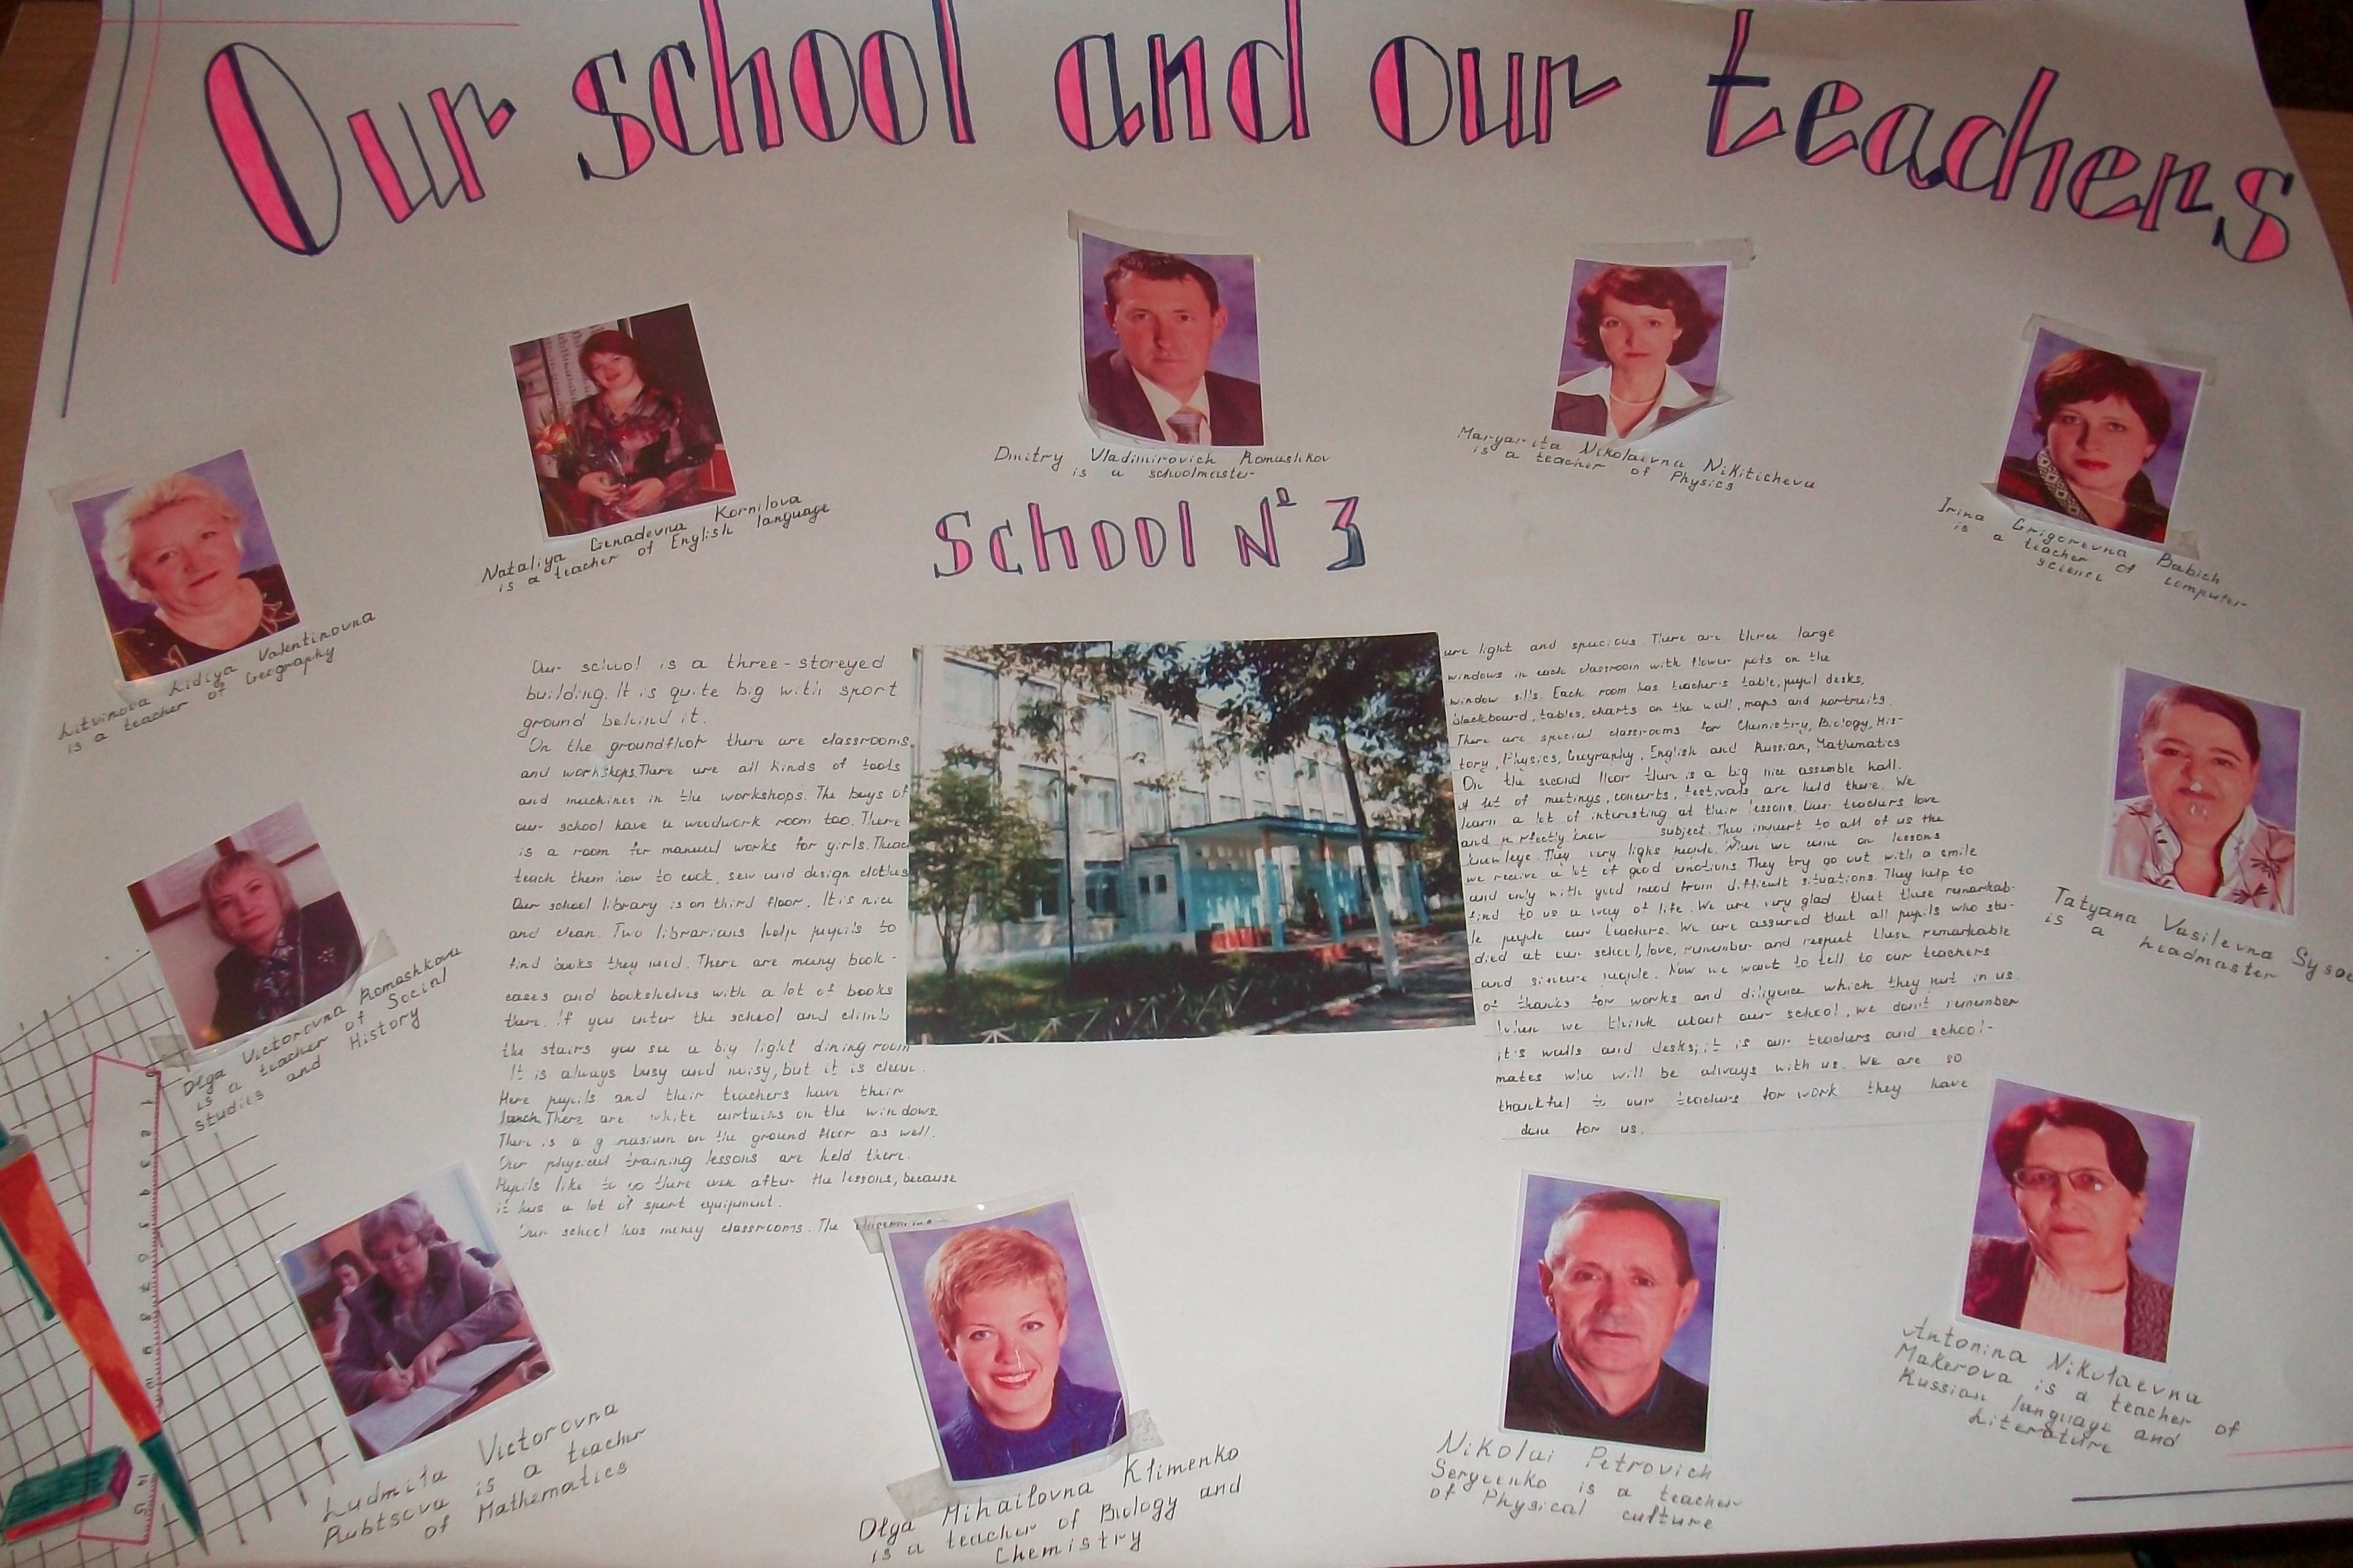 Our school and our teachers
Dmitry Vladimirovich Romashkov
is a schoolmaster
Margarita Nikolaevna Nikiticheva
is a teacher of Physics
Nataliya Genadevna Kornilova
is a teacher of English language
Irina Grigorevna Babich
is a teacher of computer
science
Litvinova Lidiya Valentinovna
is a teacher of Geography
School № 3
Our school is a three-storeyed
building. It is quite big with sport
ground behind it.
On the groundfloor there are classrooms
and workshops. There are all kinds of tools
and machines in the workshops. The boys of
our school have a woodwork room too. There
is a room for manual works for girls.
teach them how to cook, sew and design clothes
Our school library is on third floor. It is nice
and clean. Two librarians help pupils to
find books they need. There are many book-
cases and bookshelves with a lot of books
there. If you enter the school and climb
the stairs you see a big light dining room
It is always busy and noisy, but it is clean.
Here pupils and their teachers have their
lunch. There are white curtains on the windows.
There is a g nasium on the ground floor as well.
Our physical training lessons are held there.
Pupils like to go there even after the lessons, because
it has a lot of sport equipment.
Our school has many classrooms. The classrooms
are light and spacious. There are three large
windows in each classroom with flower pots on the
window sills. Each room has teacher's table, pupil desks,
blackboard, tables, charts on the wall, maps and portraits.
There are special classrooms for Chemistry, Biology, His-
tory, Physics, Geography, English and Russian, Mathematics
On the second floor there is a big nice assemble hall.
A lot of meetings, concerts, festivals are held there. We
learn a lot of interesting at their lessons. Our teachers love
and perfectly know subject. They impart to all of us the
knowlege. They very light people. When we come on lessons
we receive a lot of good emotions. They try go out with a smile
and only with good mood from difficult situations. They help to
find to us a way of life. We are very glad that these remarkab-
le people our teachers. We are assured that all pupils who stu-
died at our school, love, remember and respect these remarkable
and sincere people. Now we want to tell to our teachers
of thanks for works and diligence which they put in us.
When we think about our school, we don't remember
it's walls and desks; it is our teachers and school-
mates who will be always with us. We are so
thankful to our teachers for work they have
done for us.
Tatyana Vasilevna Sysoe
is a headmaster
Olga Victorovna Romashkova
is a teacher of Social
studies and History
Ludmila Victorovna
Rubtsova is a teacher
of Mathematics
Olga Mihailovna Klimenko
is a teacher of Biology and
Chemistry
Nikolai Petrovich
Sergeenko is a teacher
of Physical culture
Antonina Nikolaevna
Makerova is a teacher of
Russian language and
Literature